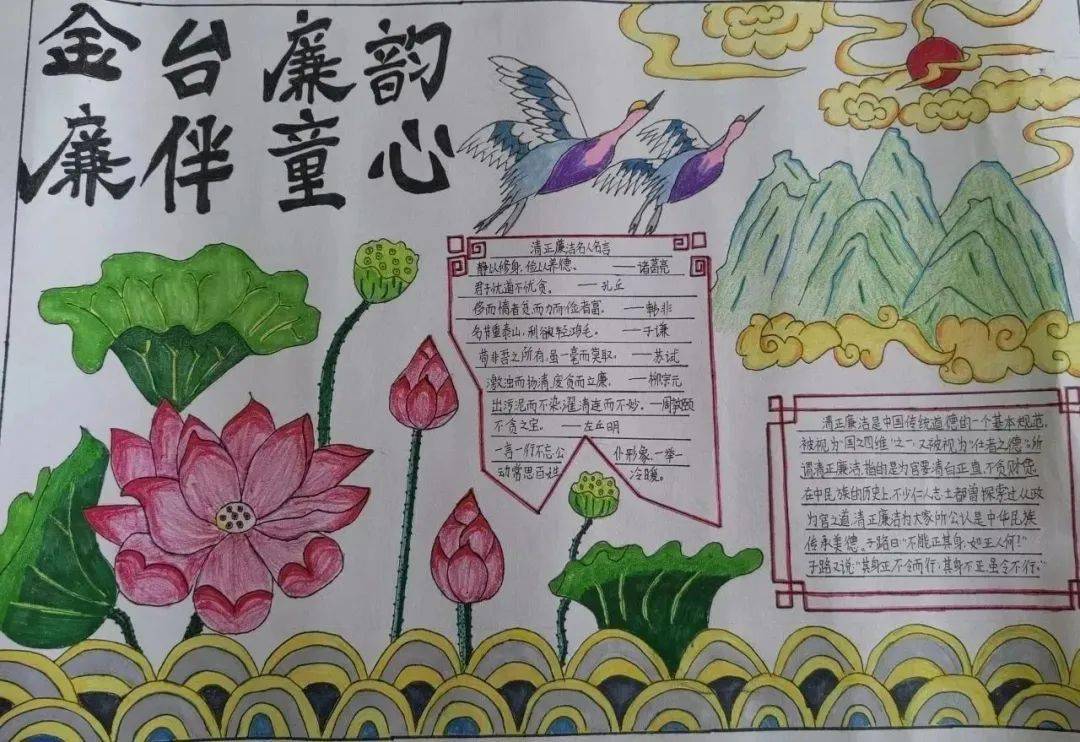 金台廉韵
廉伴童心
清正廉洁名人名言
静以修身，俭以养德。——诸葛亮
君子忧道不忧贫。——孔丘
侈而惰者贫，而力而俭者富。——韩非
名节重泰山，利欲轻鸿毛。——于谦
苟非吾之所有，虽一毫而莫取。——苏试
激浊而扬清，废贪而立廉。——柳宗元
出污泥而不染，濯清涟而不妙。—周敦颐
不贪之宝。——左丘明
一言一行不忘公仆形象，一举一
动常思百姓冷暖。
清正廉洁是中国传统道德的一个基本规范，
被视为"国之四维"之一，又被视为"仕者之德"。所
谓清正廉洁，指的是为官要清白正直，不贪财货。
在中民族的历史上，不少仁人志士都曾探索过从政
为官之道，清正廉洁为大家所公认是中华民族
传承美德。子路曰"不能正其身，如正人何！"
子路又说"其身正不令而行，其身不正虽令不行。"